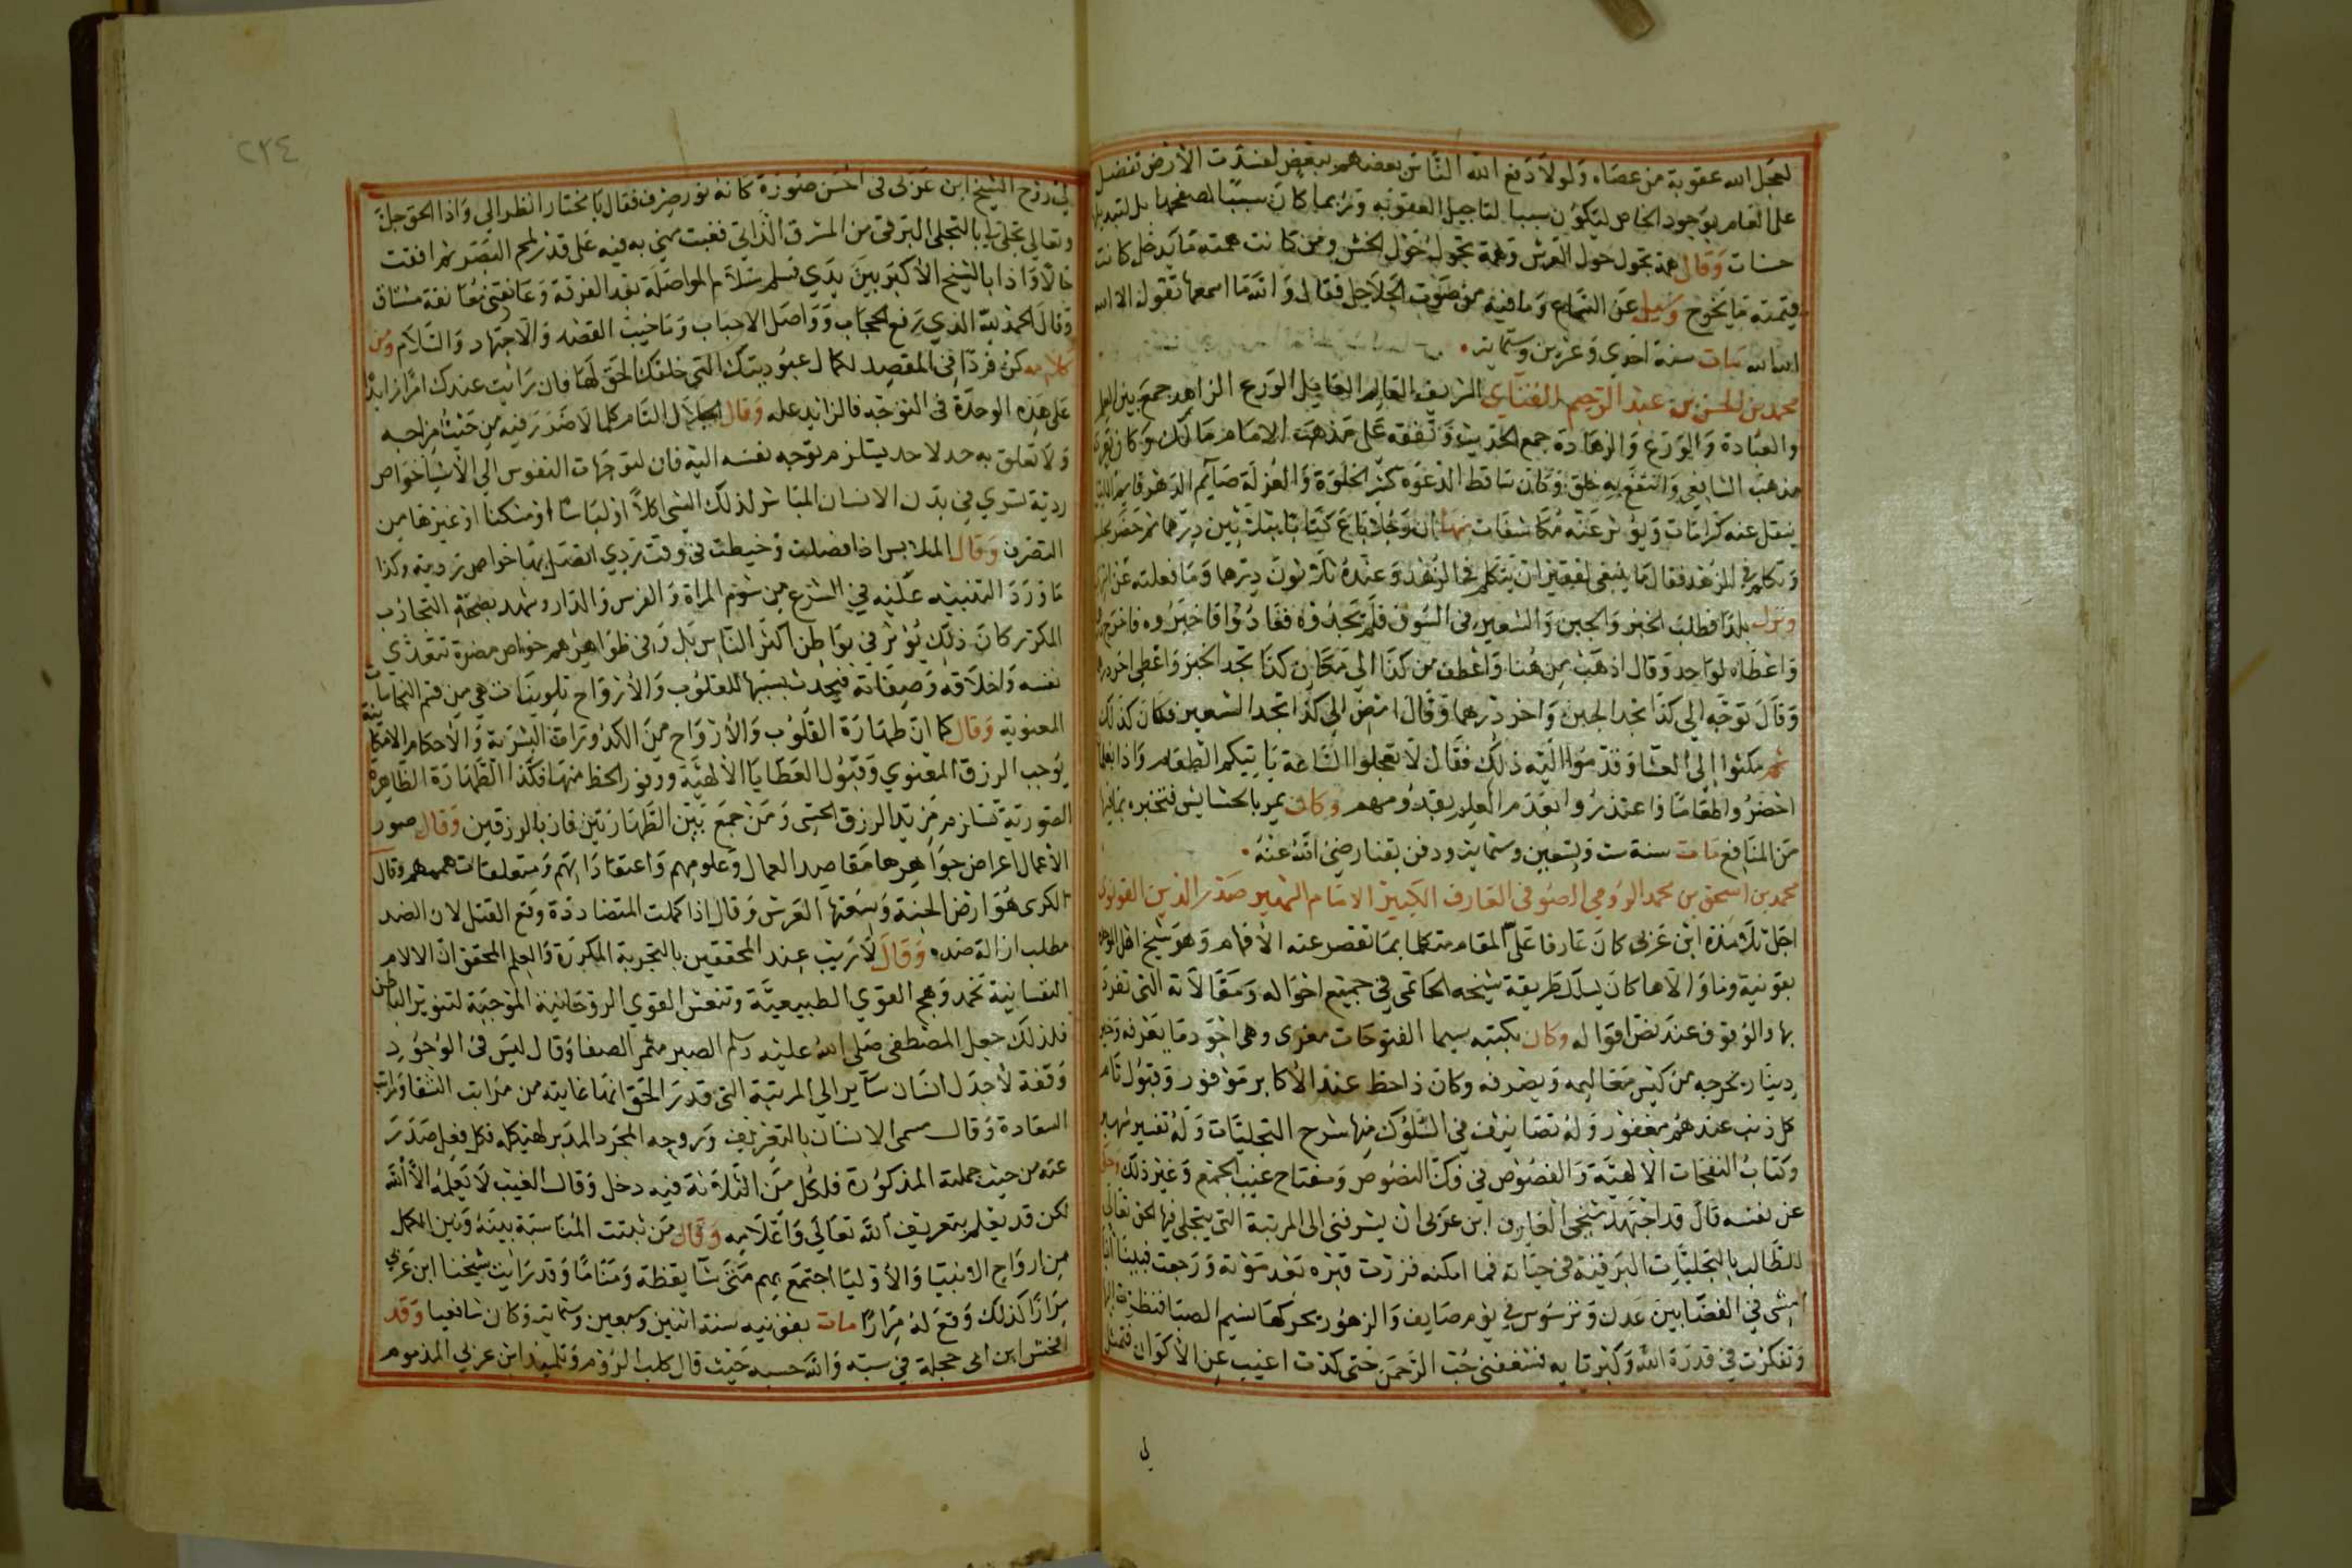 لعجل الله عقوبة من عصاه ولولا دفع الله الناس بعضهم ببعض لفسدت الأرض تفضل
على العام بوجود الخاص ليكون سببا لتاجيل العقوبة وربما كان سببا لصفحها بل لتبديلها
حسنات وقال همة تجول حول العرش وهمة تجول حول الحش ومن كانت همته ما يدخل كانت
قيمته ما يخرج وسيل عن السماع وما فيه من صوت الجلاجل فقال والله ما اسمعها تقول الا الله
الله الله مات سنة احدي وعشرين وستماية
محمد بن الحسن بن عبد الرحيم القناي الشريف العالم العامل الورع الزاهد جمع بين العلم
والعبادة والورع والزهادة جمع الحديث وتفقه على مذهب الامام مالك وكان يعرف
مذهب الشافعي وانتفع به خلق وكان ساقط الدعوه كثير الخلوة والعزلة صايم الدهر قايم الليل
ينقل عنه كرامات ويؤثر عنه مكاشفات منها ان رجلا باع كتابا بثلاثين درهما ثم حضر مجلسه
وتكلم في الزهد فقال ما ينبغي لفقير ان يتكلم في الزهد وعنده ثلاثون درهما وما فعلته عن
ونزل بلدا فطلب الخبز والجبن والشعير في السوق فلم يجدوه فعادوا فاخبروه فاخرج
واعطاه لواحد وقال اذهب من هنا واعطف من كذا الي مكان كذا تجد الخبز واعطى اخر درهما
وقال توجه الي كذا تجد الجبن واخر درهما وقال امض الي كذا تجد الشعير فكان كذلك
ثم مكثوا إلى العشا وقدموا اليه ذلك فقال لا تعجلوا الساعة ياتيكم الطعام واذا
احضروا طعاما واعتذروا بعدم العلم بقدومهم وكان يمر بالحشايش فتخبره بما فيها
من المنافع مات سنة ست وتسعين وستماية ودفن بقنا رضي الله عنه
محمد بن اسحق بن محمد الرومي الصوفي العارف الكبير الامام الشهير صدر الدين القونوي
اجل تلامذة ابن عربي كان عارفا على المقام متكلما بما تقصر عنه الأفهام وهو شيخ اهل الوحدة
بقونية وما والاها كان يسلك طريقة شيخه الحاتمي في جميع احواله ومقالاته التي تفرد
بها والوقوف عند نص اقواله وكان بكتبه سيما الفتوحات مغرى وهي اجود ما يعرفه
دينار يخرجه من كثير معاليمه ويصرفه وكان ذا حظ عند الأكابر موفور وقبول تام
كل ذنب عندهم مغفور وله تصانيف في السلوك منها شرح التجليات وله تفسير
وكتاب النفحات الالهية والفصوص في فك النصوص ومفتاح غيب الجمع وغير ذلك وحكى
عن نفسه قال قد اجتهد شيخي العارف ابن عربي ان يشرفني الى المرتبة التي يتجلى فيها الحق تعالى
للطالب بالتجليات البرقية في حياته فما امكنه فزرت قبره بعد موته ورجعت فبينا انا
امشي في الفضا بين عدن وترسوس في يوم صايف والزهور يحركها نسيم الصبا فنظرت اليها
وتفكرت في قدرة الله وكبريايه فشغفني حب الرحمن حتى كدت اغيب عن الأكوان فتمثل
لي
٢٣٤
لي روح الشيخ ابن عربي في احسن صورة كانه نور صرف فقال يا مختار انظر الي واذا الحق جل
وتعالي تجلى لي بالتجلي البرقي من المشرق الذاتي فغبت مني به فيه على قدر لمح البصر ثم افقت
حالا واذا بالشيخ الأكبر بين يدي فسلم سلام المواصلة بعد الفرقة وعانقني معانقة مشتاق
وقال الحمد لله الذي رفع الحجاب وواصل الاحباب وما خيب القصد والاجتهاد والسلام ومن
كلامه كن فردا في المقصد لكمال عبوديتك التي خلقك الحق لها فان رايت عندك امرا زايدا
على هذه الوحدة في التوجه فالزايد عله وقال الجلال التام كما لا ضرر فيه من حيث مزاجه
ولا تعلق به حد لاحد يستلزم توجه نفسه اليه فان لتوجهات النفوس الي الأشيا خواص
ردية تسري في بدن الانسان المباشر لذلك الشي اكلا او لباسا او مسكنا او غيرها من
التصرف وقال الملابس اذا فصلت وخيطت في وقت ردي اتصل بها خواص ردية وكذا
ما ورد التنبيه عليه في الشرع من شوم المراة والفرس والدار وشهد بصحته التجارب
المكررة كان ذلك يؤثر في بواطن اكثر الناس بل وفي ظواهرهم خواص مضرة تتعدي
نفسه واخلاقه وصفاته فيحدث بسببها للقلوب والأرواح تلوينات هي من قسم النجاسات
المعنوية وقال كما ان طهارة القلوب والأرواح من الكدورات البشرية والأحكام الامكانية
يوجب الرزق المعنوي وقبول العطايا الألهية ووفور الحظ منها فكذا الطهارة الظاهرة
الصورية تستلزم مزيد الرزق الحسي ومن جمع بين الطهارتين فاز بالرزقين وقال صور
الأعمال اعراض جواهرها مقاصد العمال وعلومهم واعتقاداتهم ومتعلقات هممهم وقال
الكرسي هو ارض الجنة وسقفها العرش وقال اذا كملت المتضاددة وقع القتل لان الضد
مطلب ازالة ضده وقال لا ريب عند المحققين بالتجربة المكررة والعلم المحقق ان الالام
النفسانية تخمد وهج القوي الطبيعية وتنعش القوي الروحانية الموجبة لتنوير الباطن
فلذلك جعل المصطفى صلى الله عليه وسلم الصبر مثمر الصفا وقال ليس في الوجود
وقفة لأحد بل انسان ساير الي المرتبة التي قدر الحق انها غايته من مراتب الشقا ومراتب
السعادة وقال مسمى الانسان بالتعريف وروحه المجرد المدبر لهيكله فكل فعل صدر
عنه من حيث جملته المذكورة فلكل من الثلاثة فيه دخل وقال الغيب لا يعلمه الا الله
لكن قد يعلم بتعريف الله تعالي واعلامه وقال من ثبتت المناسبة بينه وبين الكمل
من ارواح الانبيا والأوليا اجتمع بهم متى شا يقظة ومناما وقد رايت شيخنا ابن عربي
مرارا كذلك وقع له مرارا مات بقونيه سنة اثنين وسبعين وستماية وكان شافعيا وقد
افحش ابن ابي حجلة في سبه والله حسبه حيث قال كلب الروم وتلميذ ابن عربي المذموم